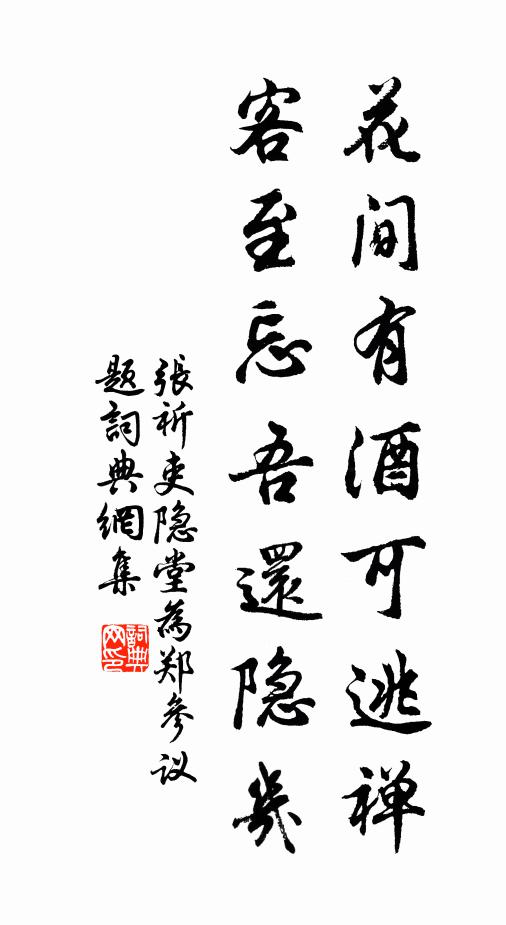 花间有酒可逃禅
客至忘吾還隐几
張祈吏隐堂為郑參议
题詞典網集
詞典網印